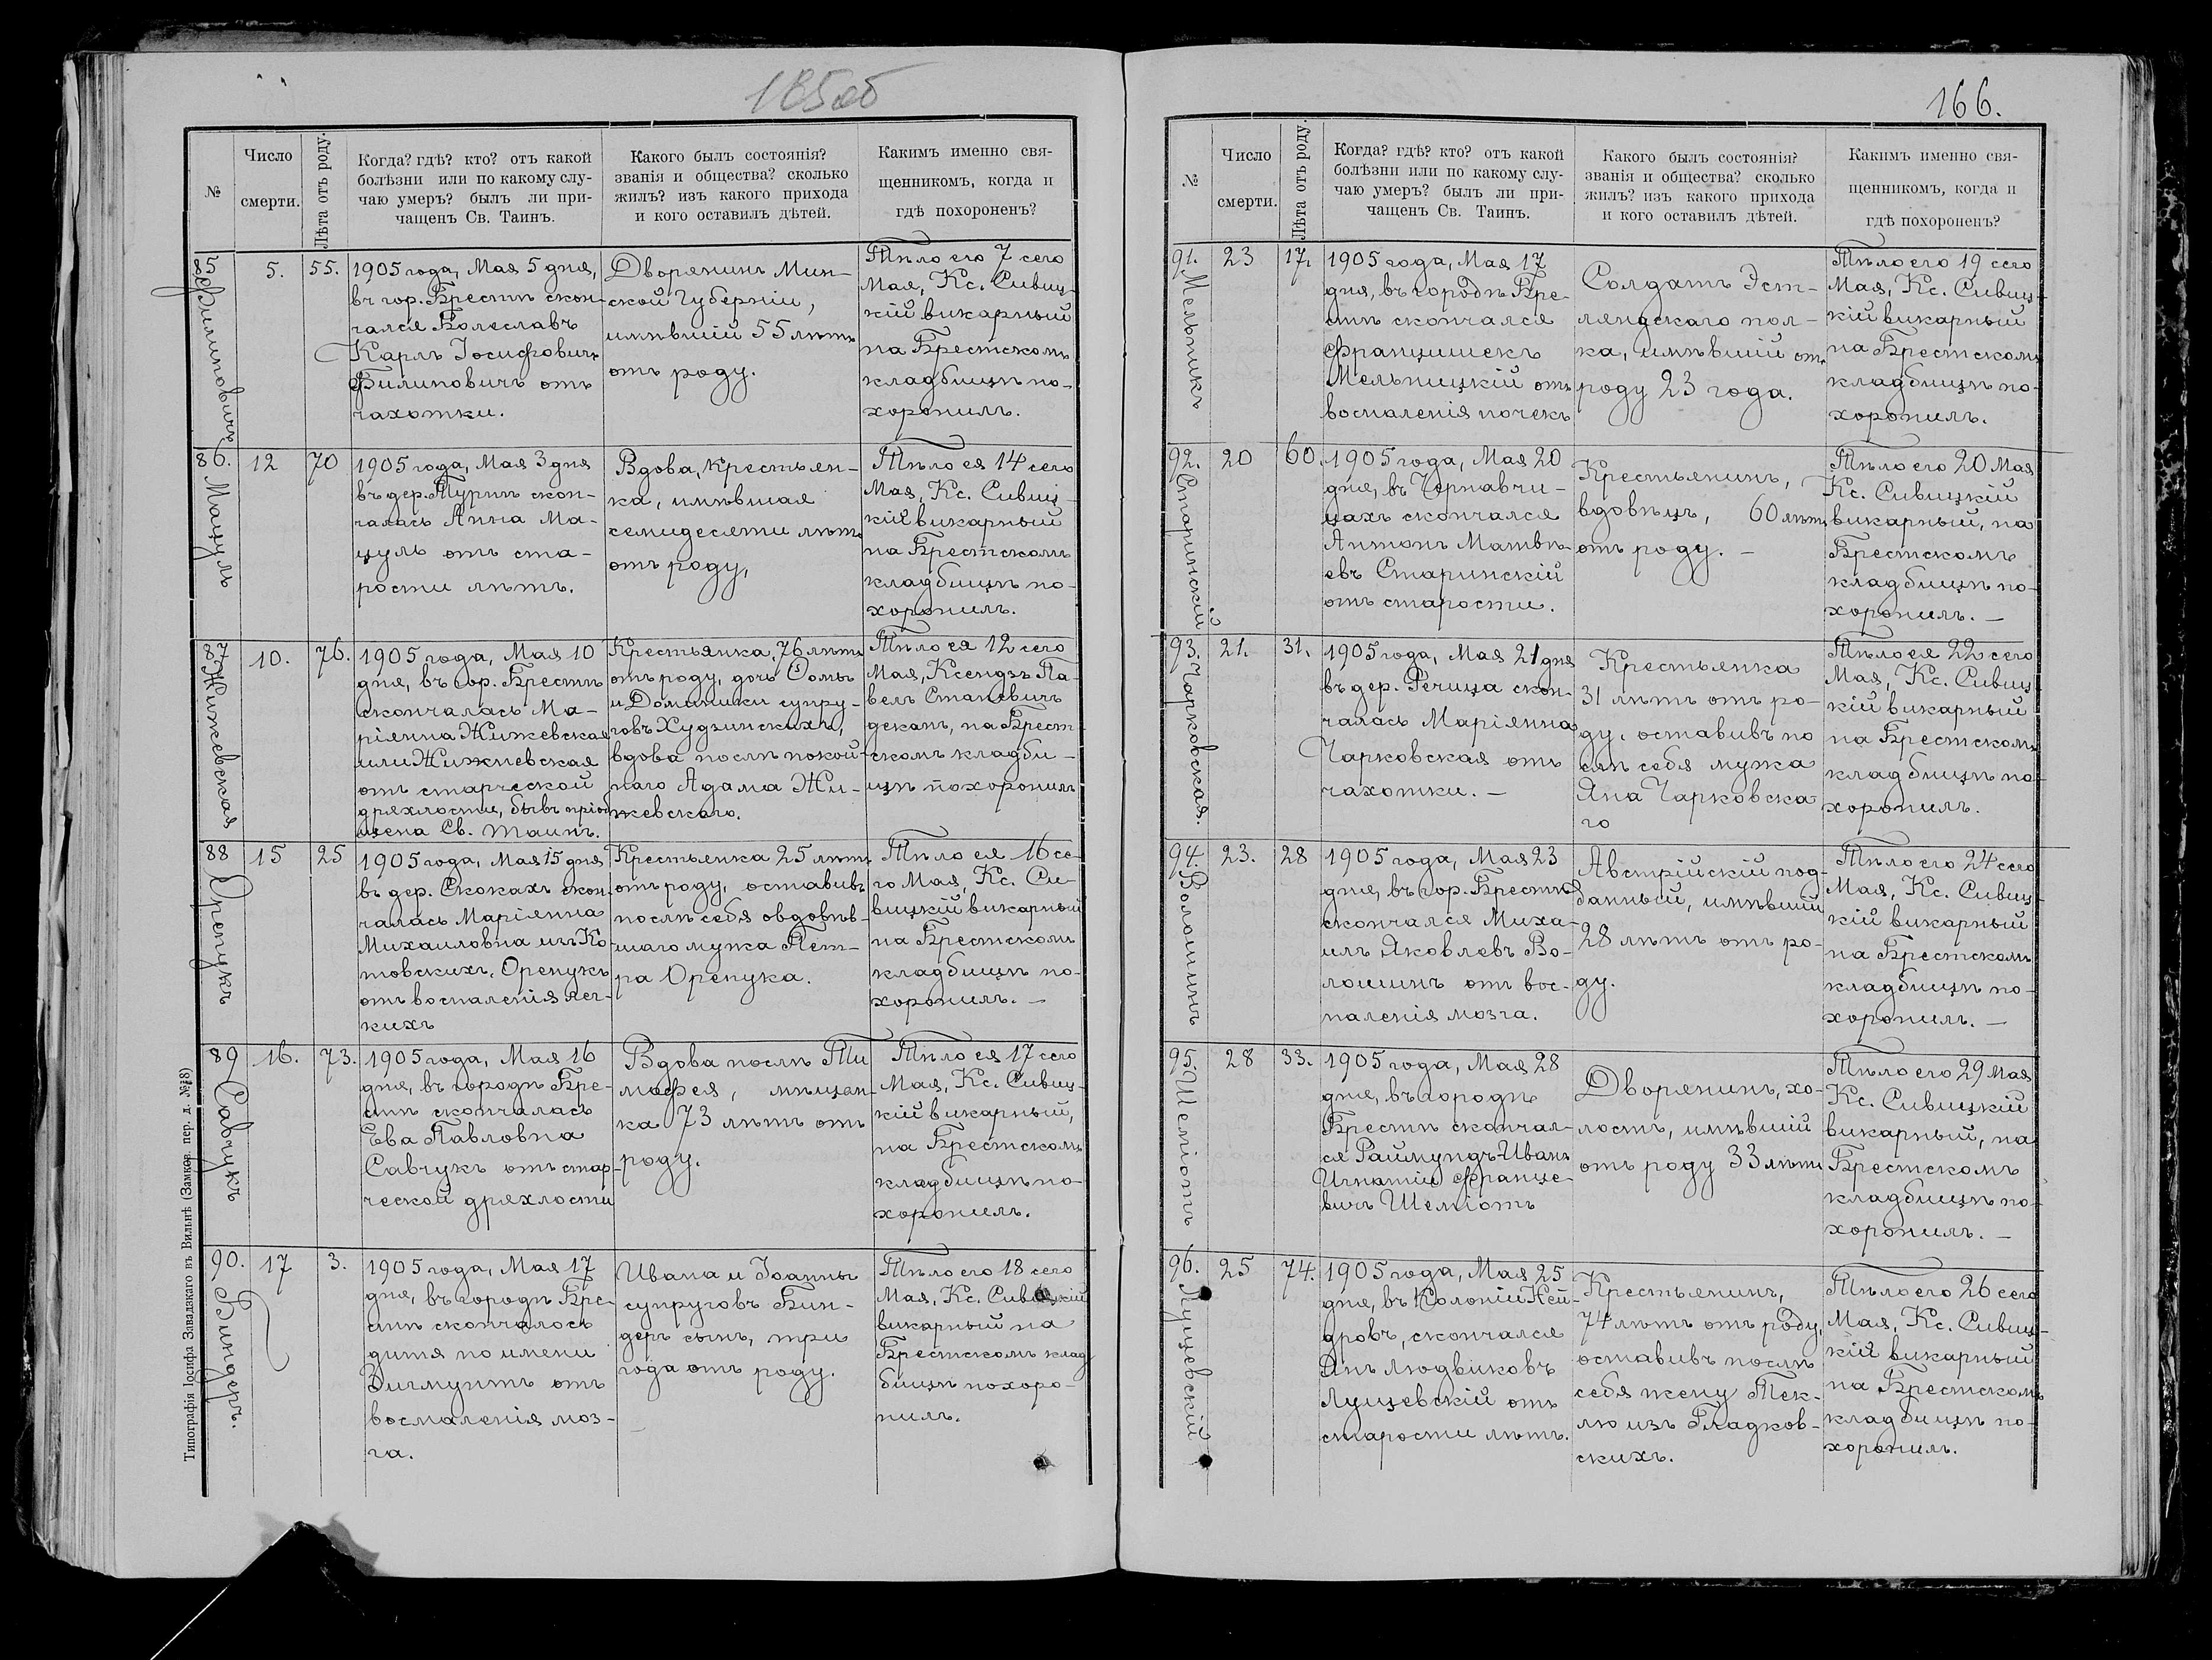 185об
№
Число
смерти.
Лѣта отъ роду.
Когда? гдѣ? кто? отъ какой
болѣзни или по какому слу-
чаю умеръ? былъ ли при-
чащенъ Св. Таинъ.
Какого былъ состоянія?
званія и общества? сколько
жилъ? изъ какого прихода
и кого оставилъ дѣтей.
Какимъ именно свя-
щенникомъ, когда и
гдѣ похороненъ?
85
Филиповичъ
5.
55.
1905 года, Мая 5 дня,
въ гор. Брестѣ скон-
чался Болеславъ
Карлъ Іосифовичъ
Филиповичъ отъ
чахотки.
Дворянинъ Мин-
ской Губерніи,
имѣвшій 55 лѣтъ
отъ роду.
Тѣло его 7 сего
Мая, Кс. Сивиц-
кій викарный
на Брестскомъ
кладбищѣ по-
хоронилъ.
86.
Мацуль
12
70
1905 года, Мая 3 дня
въ дер. Турин скон-
чалась Анна Ма-
цуль отъ ста-
рости лѣтъ.
Вдова, крестьян-
ка, имѣвшая
семидесяти лѣтъ
отъ роду,
Тѣло ея 14 сего
Мая, Кс. Сивиц-
кій викарный
на Брестскомъ
кладбищѣ по-
хоронилъ.
87
Жижевская
10.
76.
1905 года, Мая 10
дня, въ гор. Брестѣ
скончалась Ма-
ріянна Жижевская
или Жижневская
отъ старческой
дряхлости, бывъ пріоб
щена Св. Таинъ.
Крестьянка, 76 лѣтъ
отъ роду, дочь Ѳомы
и Доминики супру-
говъ Худзинскихъ,
вдова послѣ покой-
наго Адама Жи-
жевскаго.
Тѣло ея 12 сего
Мая, Ксендзъ Па-
велъ Станевичъ
деканъ, на Брест-
скомъ кладби-
щѣ похоронилъ
88
Орепукъ
15
25
1905 года, Мая 15 дня
въ дер. Скокахъ скон-
чалась Маріянна
Михаиловна изъ Ко
товскихъ, Орепукъ
отъ воспаленія лег-
кихъ
Крестьянка 25 лѣтъ
отъ роду, оставивъ
послѣ себя овдовѣв-
шаго мужа Пет-
ра Орепука.
Тѣло ея 16 се-
го Мая, Кс. Си-
вицкій викарный
на Брестскомъ
кладбищѣ по-
хоронилъ. —
89
Савчукъ
16.
73.
1905 года, Мая 16
дня, въ городѣ Бре-
стѣ скончалась
Ева Павловна
Савчукъ отъ стар-
ческой дряхлости
Вдова послѣ Ти
мофея, мѣщан-
ка 73 лѣтъ отъ
роду.
Тѣло ея 17 сего
Мая, Кс. Сивиц-
кій викарный,
на Брестскомъ
кладбищѣ по-
хоронилъ.
90.
Биндеръ.
17
3.
1905 года, Мая 17
дня, въ городѣ Бре-
стѣ скончалось
дитя по имени
Зигмунтъ отъ
воспаленія моз-
га.
Ивана и Іоанны
супруговъ Бин-
деръ сынъ, три
года отъ роду.
Тѣло его 18 сего
Мая, Кс. Сивицкій
викарный на
Брестскомъ клад
бищѣ похоро-
нилъ.
Типографія Іосифа Завадзкаго въ Вильнѣ (Замков. пер. д. № 8)
166.
№
Число
смерти.
Лѣта отъ роду.
Когда? гдѣ? кто? отъ какой
болѣзни или по какому слу-
чаю умеръ? былъ ли при-
чащенъ Св. Таинъ.
Какого былъ состоянія?
званія и общества? сколько
жилъ? изъ какого прихода
и кого оставилъ дѣтей.
Какимъ именно свя-
щенникомъ, когда и
гдѣ похороненъ?
91.
Мельникъ
23
17.
1905 года, Мая 17
дня, въ городѣ Бре-
стѣ скончался
Францишекъ
Мельницкій отъ
воспаленія почекъ
Солдатъ Эст-
ляндскаго пол-
ка, имѣвшій отъ
роду 23 года.
Тѣло его 19 сего
Мая, Кс. Сивиц-
кій викарный
на Брестскомъ
кладбищѣ по-
хоронилъ.
92.
Старинскій
20
60.
1905 года, Мая 20
дня, въ Чернавчи-
цахъ скончался
Антонъ Матвѣ-
евъ Старинскій
отъ старости.
Крестьянинъ,
вдовецъ, 60 лѣтъ
отъ роду. —
Тѣло его 20 Мая
Кс. Сивицкій
викарный, на
Брестскомъ
кладбищѣ по-
хоронилъ. —
93.
Чарковская.
21.
31.
1905 года, Мая 21 дня
въ дер. Речица скон-
чалась Маріянна
Чарковская отъ
чахотки. —
Крестьянка
31 лѣтъ отъ ро-
ду, оставивъ по
слѣ себя мужа
Яна Чарковска
го
Тѣло ея 22 сего
Мая, Кс. Сивиц-
кій викарный
на Брестскомъ
кладбищѣ по-
хоронилъ.
94.
Волошинъ
23.
28
1905 года, Мая 23
дня, въ гор. Брестѣ
скончался Миха-
илъ Яковлевъ Во-
лошинъ отъ вос-
паленія мозга.
Австрійскій под-
данный, имѣвшій
28 лѣтъ отъ ро-
ду.
Тѣло его 24 сего
Мая, Кс. Сивиц-
кій викарный
на Брестскомъ
кладбищѣ по-
хоронилъ. —
95.
Шеміотъ
28
33.
1905 года, Мая 28
дня, въ городѣ
Брестѣ скончал-
ся Раймундъ-Иванъ
Игнатій Франце-
вичъ Шеміотъ
Дворянинъ, хо-
лостъ, имѣвшій
отъ роду 33 лѣтъ
Тѣло его 29 Мая
Кс. Сивицкій
викарный, на
Брестскомъ
кладбищѣ по-
хоронилъ. —
96.
Луцевскій
25
74.
1905 года, Мая 25
дня, въ Колоніи Ней-
дровъ, скончался
Янъ Людвиковъ
Луцевскій отъ
старости лѣтъ.
Крестьянинъ,
74 лѣтъ отъ роду,
оставивъ послѣ
себя жену Тек-
лю изъ Гладков-
скихъ.
Тѣло его 26 сего
Мая, Кс. Сивиц-
кій викарный
на Брестскомъ
кладбищѣ по-
хоронилъ.